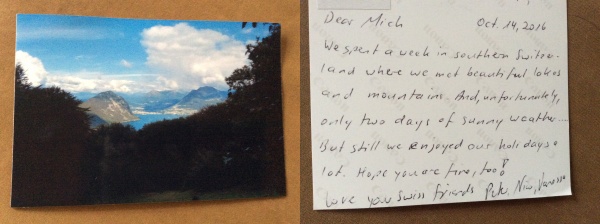 Dear Mich Oct. 14, 2016
We spent a week in southern Switzer-
land where we met beautiful lakes
and mountains. And, unfortunately,
only two days of sunny weather....
But still we enjoyed our holidays a
lot. Hope you are fine, too!
Love your Swiss friends Nino, Vanessa